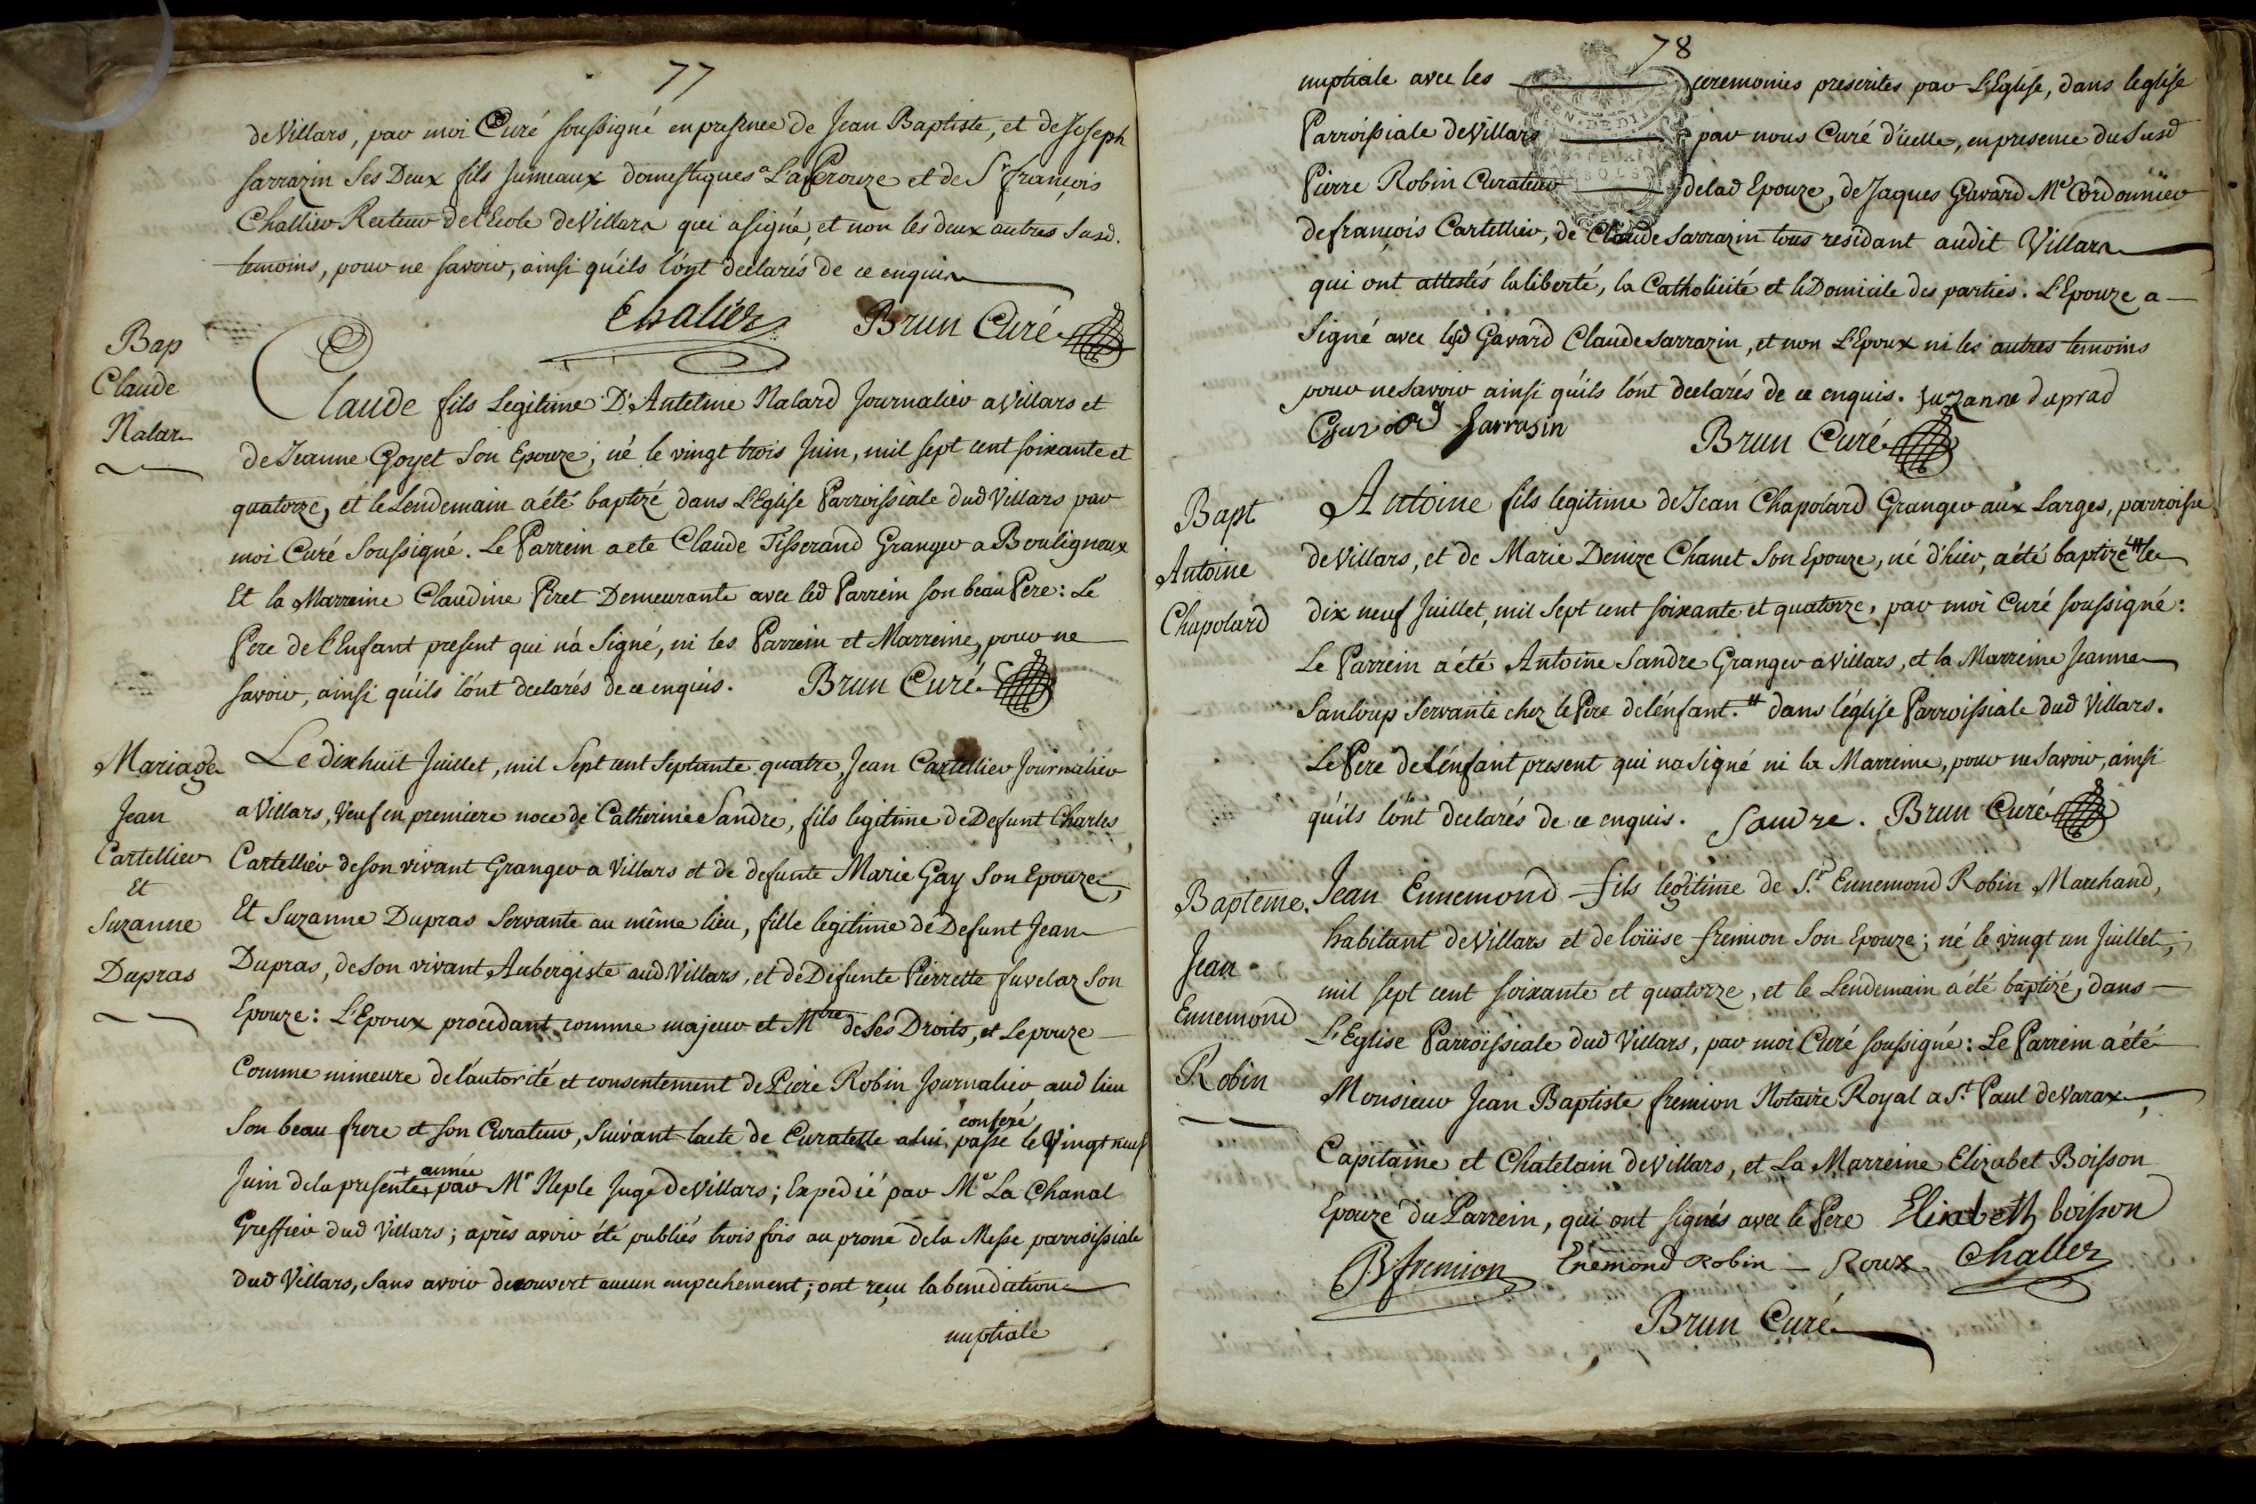 77
de Villars, par moi Curé soussigné en presence de Jean Baptiste, et de Joseph
sarrazin ses Deux fils Jumeaux domestiques a Laperouze et de Sr françois
Challier Recteur de l'Ecole de Villars qui a signé, et non les deux autres susd.
temoins, pour ne savoir, ainsi qu'ils l'ont declarés de ce enquis
Chalier Brun Curé
Bap
Claude
Nalar
Claude fils Legitime D'Antelme Nalard Journalier a Villars et
de Jeanne Goyet son Epouze, né le vingt trois Juin, mil sept cent soixante et
quatorze, et le Lendemain a été baptizé dans L'Eglise Parroissiale dud Villars par
moi Curé Soussigné. Le Parrein a ete Claude Tisserand Granger a Bouligneux
Et la Marreine Claudine Peret Demeurante avec led Parrein son beau Pere: Le
Pere de l'Enfant present qui n'a signé, ni les Parrein et Marreine, pour ne
savoir, ainsi qu'ils l'ont declarés de ce enquis. Brun Curé
Mariage
Jean
Cartellier
Et
Suzanne
Dupras
Le dixhuit Juillet, mil Sept cent Septante quatre, Jean Cartellier Journalier
a Villars, Veuf en premiere noce de Catherine Sandre, fils legitime de Defunt Charles
Cartellier de son vivant Granger a Villars et de defunte Marie Gay Son Epouze,
Et Suzanne Dupras Servante au même lieu, fille legitime de Defunt Jean
Dupras, de son vivant Aubergiste aud Villars, et de Defunte Pierrette Juvelaz Son
Epouze: L'Epoux procedant comme majeur et Mtre de Ses Droits, et Lepouze
Comme mineure de l'autorité et consentement de Piere Robin Journalier aud lieu
Son beau frere et son Curateur, Suivant l'acte de Curatelle a lui conferé, passé le Vingt neuf
Juin de la presente + année par Mr Neple Juge de Villars; Expedié par Me La Chanal
Greffier dud Villars; après avoir été publiés trois fois au prone de la Messe parroissiale
dud Villars, Sans avoir decouvert aucun empechement; ont reçu la benediction
nuptiale
78
nuptiale avec les ceremonies prescrites par L'Eglise, dans leglise
Parroissiale de Villars par nous Curé d'icelle, en presence du Susd
Pierre Robin Curateur de lad Epouze, de Jaques Gavard Me Cordonnier
de françois Cartellier, de Claude Sarrazin tous residant audit Villars
qui ont attestés la liberté, la Catholicité et le Domicile des parties. L'Epouze a
Signé avec led Gavard Claude Sarrazin, et non L'Epoux ni les autres temoins
pour ne Savoir ainsi qu'ils l'ont declarés de ce enquis. Suzanne duprad
Gavard Sarrasin Brun Curé
Bapt
Antoine
Chapolard
Antoine fils legitime de Jean Chapolard Granger aux Larges, parroisse
de Villars, et de Marie Denize Chanet Son Epouze, né d'hier, a été baptizé # le
dix neuf Juillet, mil Sept cent soixante et quatorze, par moi Curé soussigné:
Le Parrein a été Antoine Sandre Granger a Villars, et la Marreine Jeanne
Sanloup Servante chez le Pere de l'enfant. # dans l'église Parroissiale dud Villars.
Le Pere de L'enfant present qui na Signé ni la Marreine, pour ne Savoir, ainsi
qu'ils l'ont declarés de ce enquis. Sandre. Brun Curé
Bapteme.
Jean
Ennemond
Robin
Jean Ennemond fils legitime de Sr. Ennemond Robin Marchand,
habitant de Villars et de loüise fremion Son Epouze; né le vingt un Juillet,
mil sept cent soixante et quatorze, et le Lendemain a été baptizé, dans
L'Eglise Parroissiale dud Villars, par moi Curé soussigné: Le Parrein a été
Monsieur Jean Baptiste fremion Notaire Royal a St. Paul de Varax,
Capitaine et Chatelain de Villars, et La Marreine Elizabet Boisson
Epouze du Parrein, qui ont signés avec le Pere Elizabeth boisson
fremion Enemond Robin Roux Challier
Brun Curé